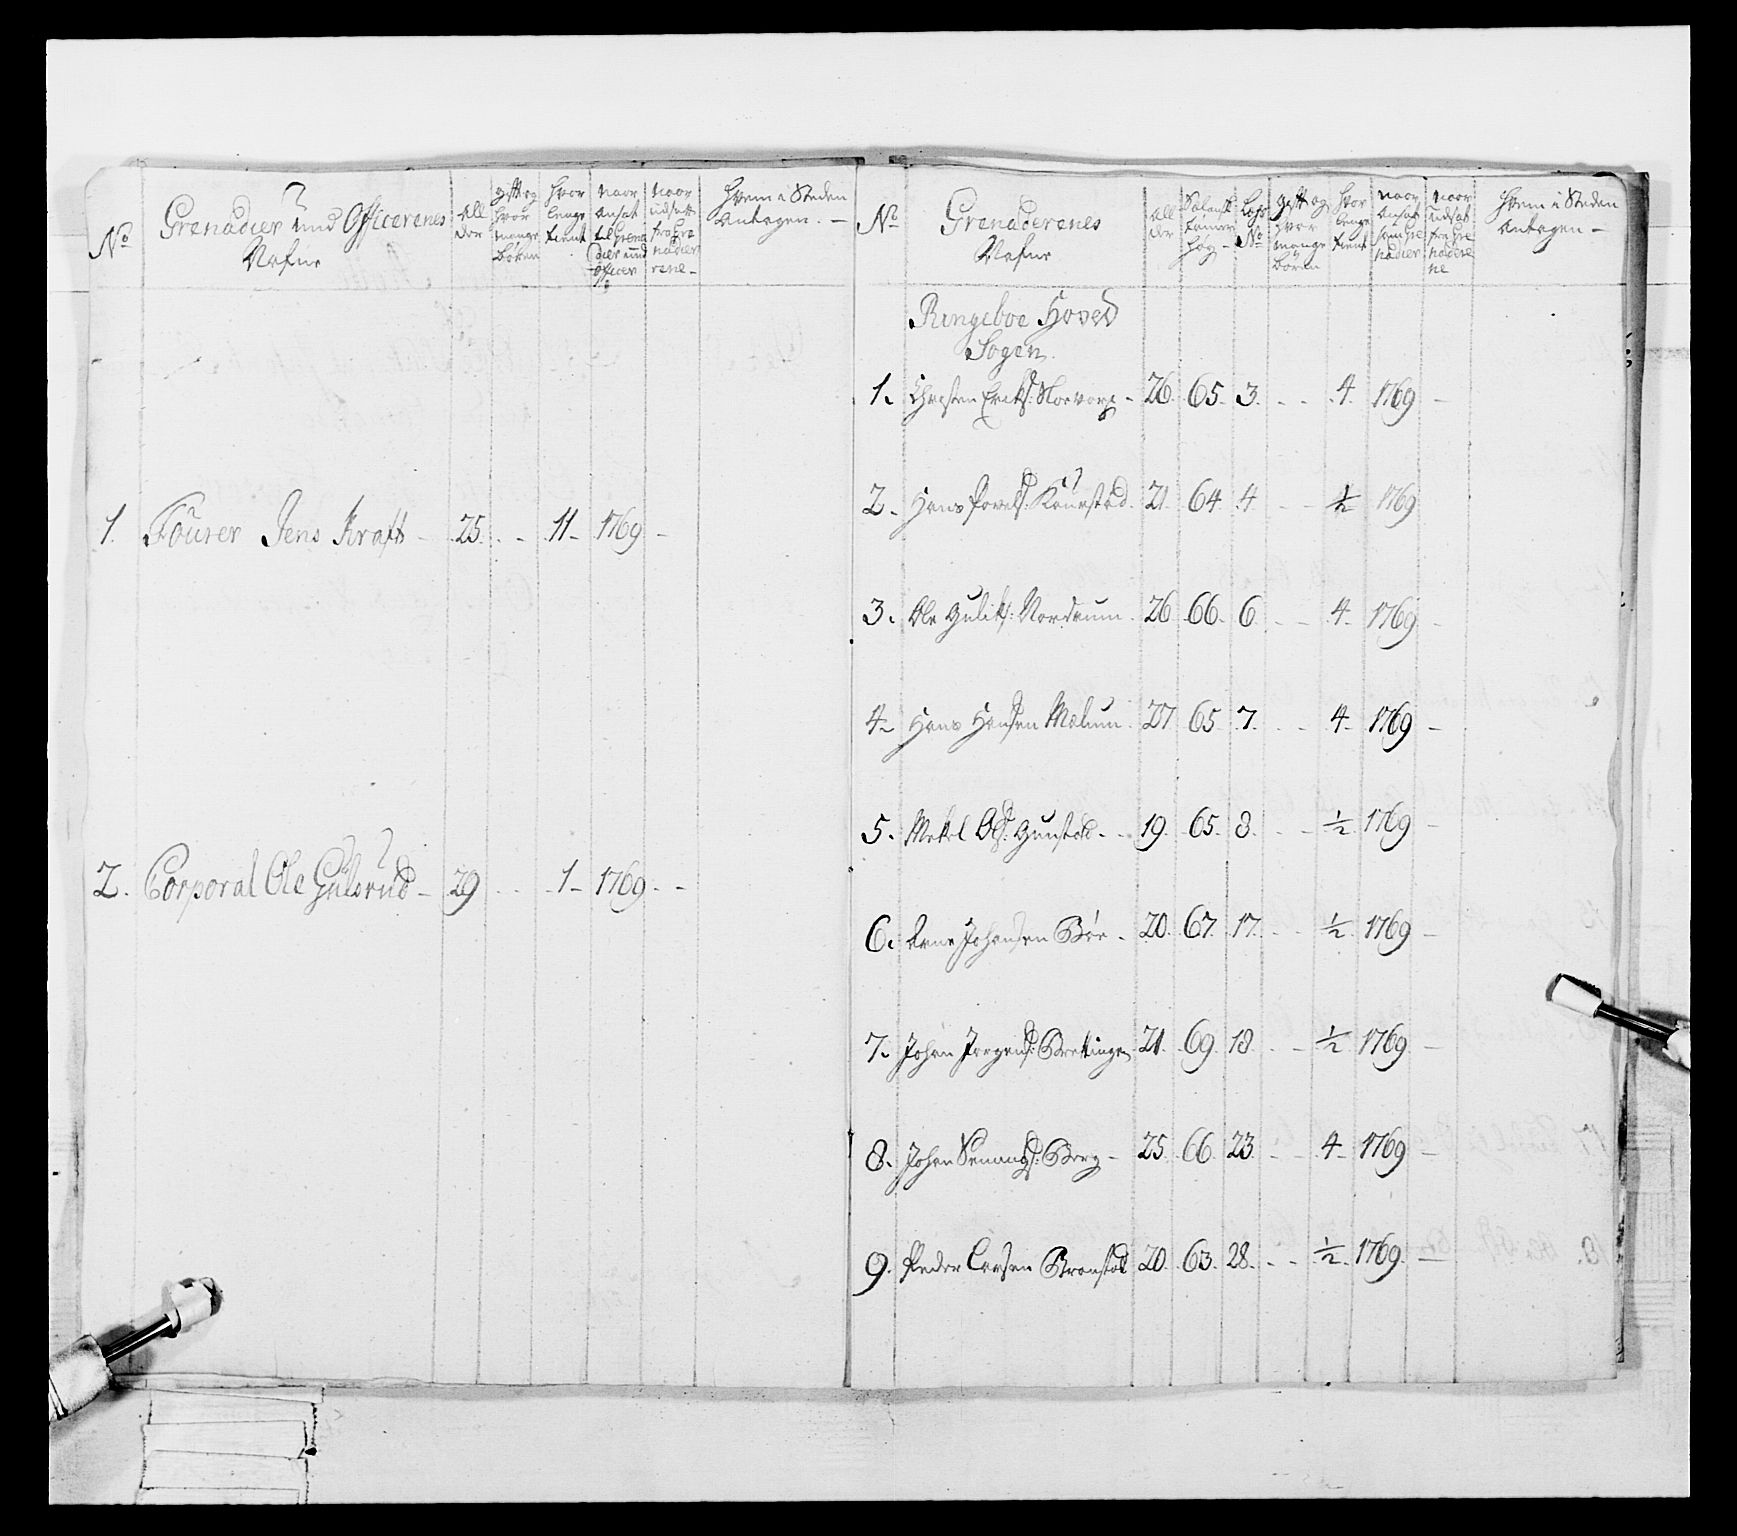 No
Grenadier und Officerenes
Nafne
All
der
gift og
hvor
mange
Bören
hvor
lenge
tient
naar
ansat
til Grena
dier und
officer
naar
udsatt
fra Gre
nadier
rene -
Hvem i Steden
Antagen. -
1. Fourer Jens Kraft - 25. - - 11 - 1769 -
2. Corporal Ole Gulsrud - 29 - - 1 - 1769 - -
No
Grenaderenes
Nafne
All
der
hög -
Lægs
No
gift og
hvor
mange
Börn
hvor
lenge
tient
naar
ansat
som Gre
nadier
naar
udsat
fra Gre
nadere
ne
Hvem i Steden
Antagen -
Ringeboe Hoved
Sogen.
1. Christen Eriks: - 26. 65. 3. - - 4. 1769 -
2. Hans Povels: 21. 64. 4 - - 1/2 1769
3. Ole Guliks: Nordrum. 26. 66. 6. - - 4. 1769 -
4. Hans Hansen Mælum. 27. 65. 7. - - 4. 1769 -
5. Mikel Ols: Gunstad - - 19. 65. 8. - - 1/2 1769 -
6. Arne Johansen Böe - 20. 67. 17. - - 1/2 1769 -
7. Johan Jörgens: Brettingen 21. 69. 18. - - 1/2 1769 -
8. Johan Simens: Berg - 25. 66. 23. - - 4. 1769 -
9. Peder Larsen 20. 63. 28. - - 1/2. 1769. -